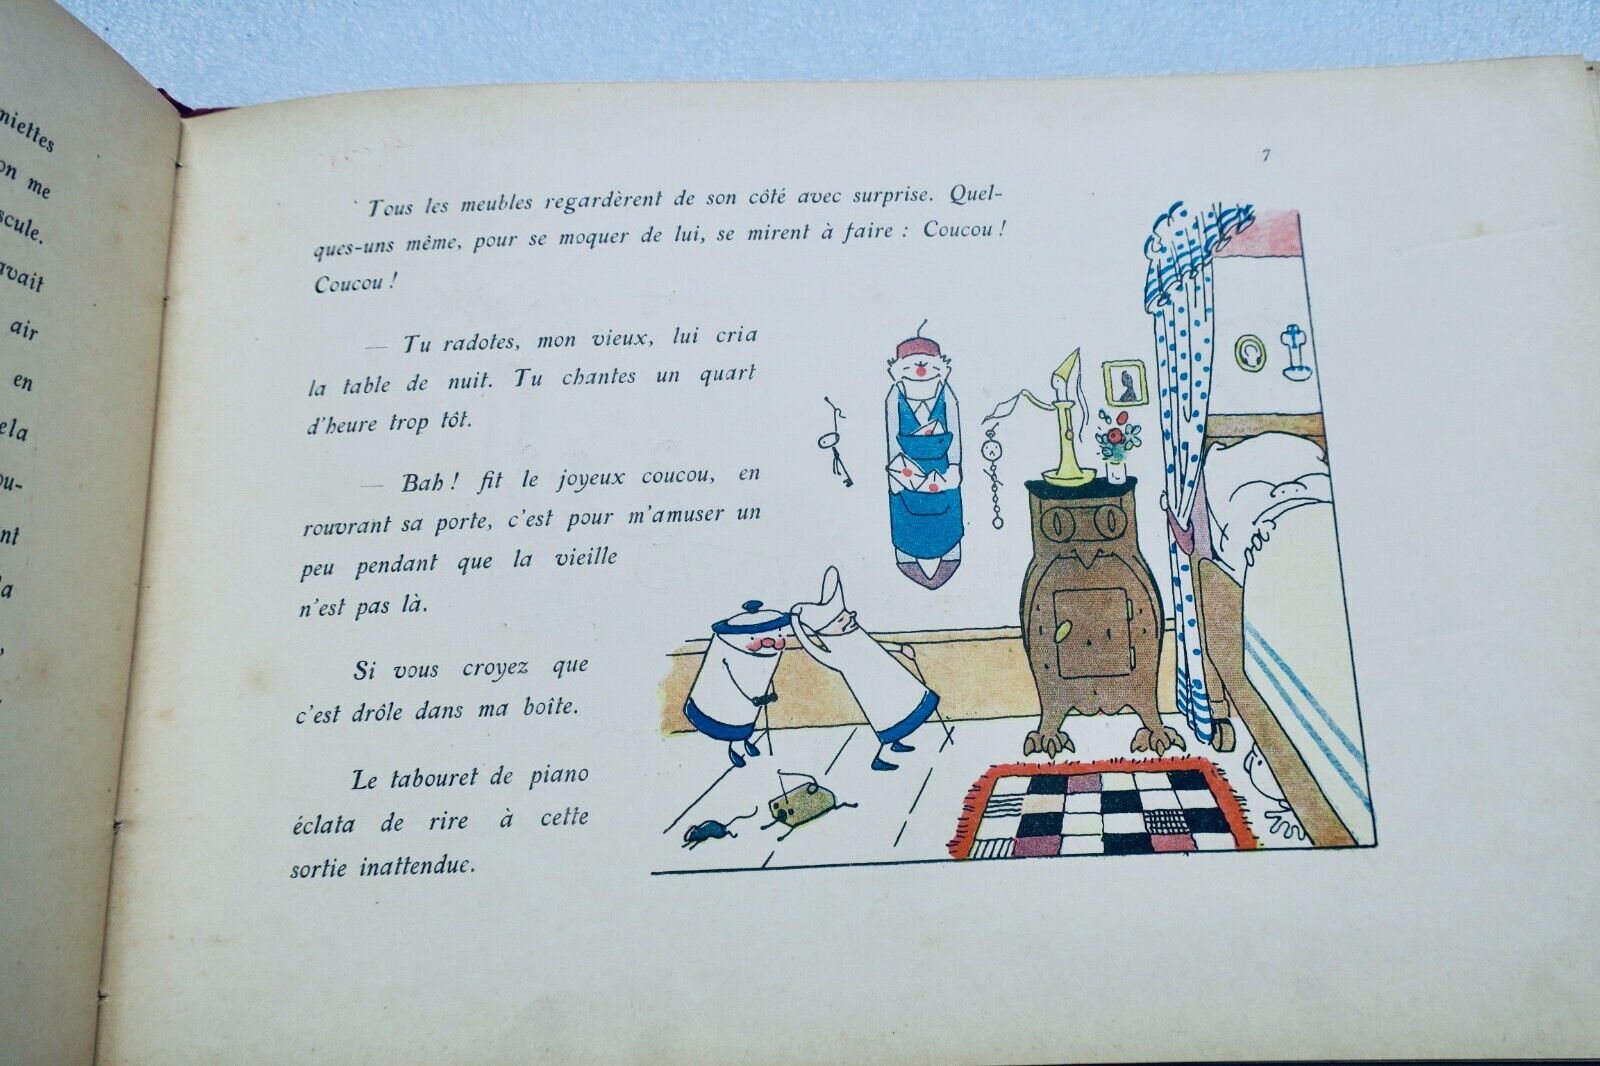 niettes
on me
scule.
avait
air
en
ela
ou-
nt
la
7
Tous les meubles regardèrent de son côté avec surprise. Quel-
ques-uns même, pour se moquer de lui, se mirent à faire : Coucou !
Coucou !
— Tu radotes, mon vieux, lui cria
la table de nuit. Tu chantes un quart
d'heure trop tôt.
— Bah ! fit le joyeux coucou, en
rouvrant sa porte, c'est pour m'amuser un
peu pendant que la vieille
n'est pas là.
Si vous croyez que
c'est drôle dans ma boîte.
Le tabouret de piano
éclata de rire à cette
sortie inattendue.